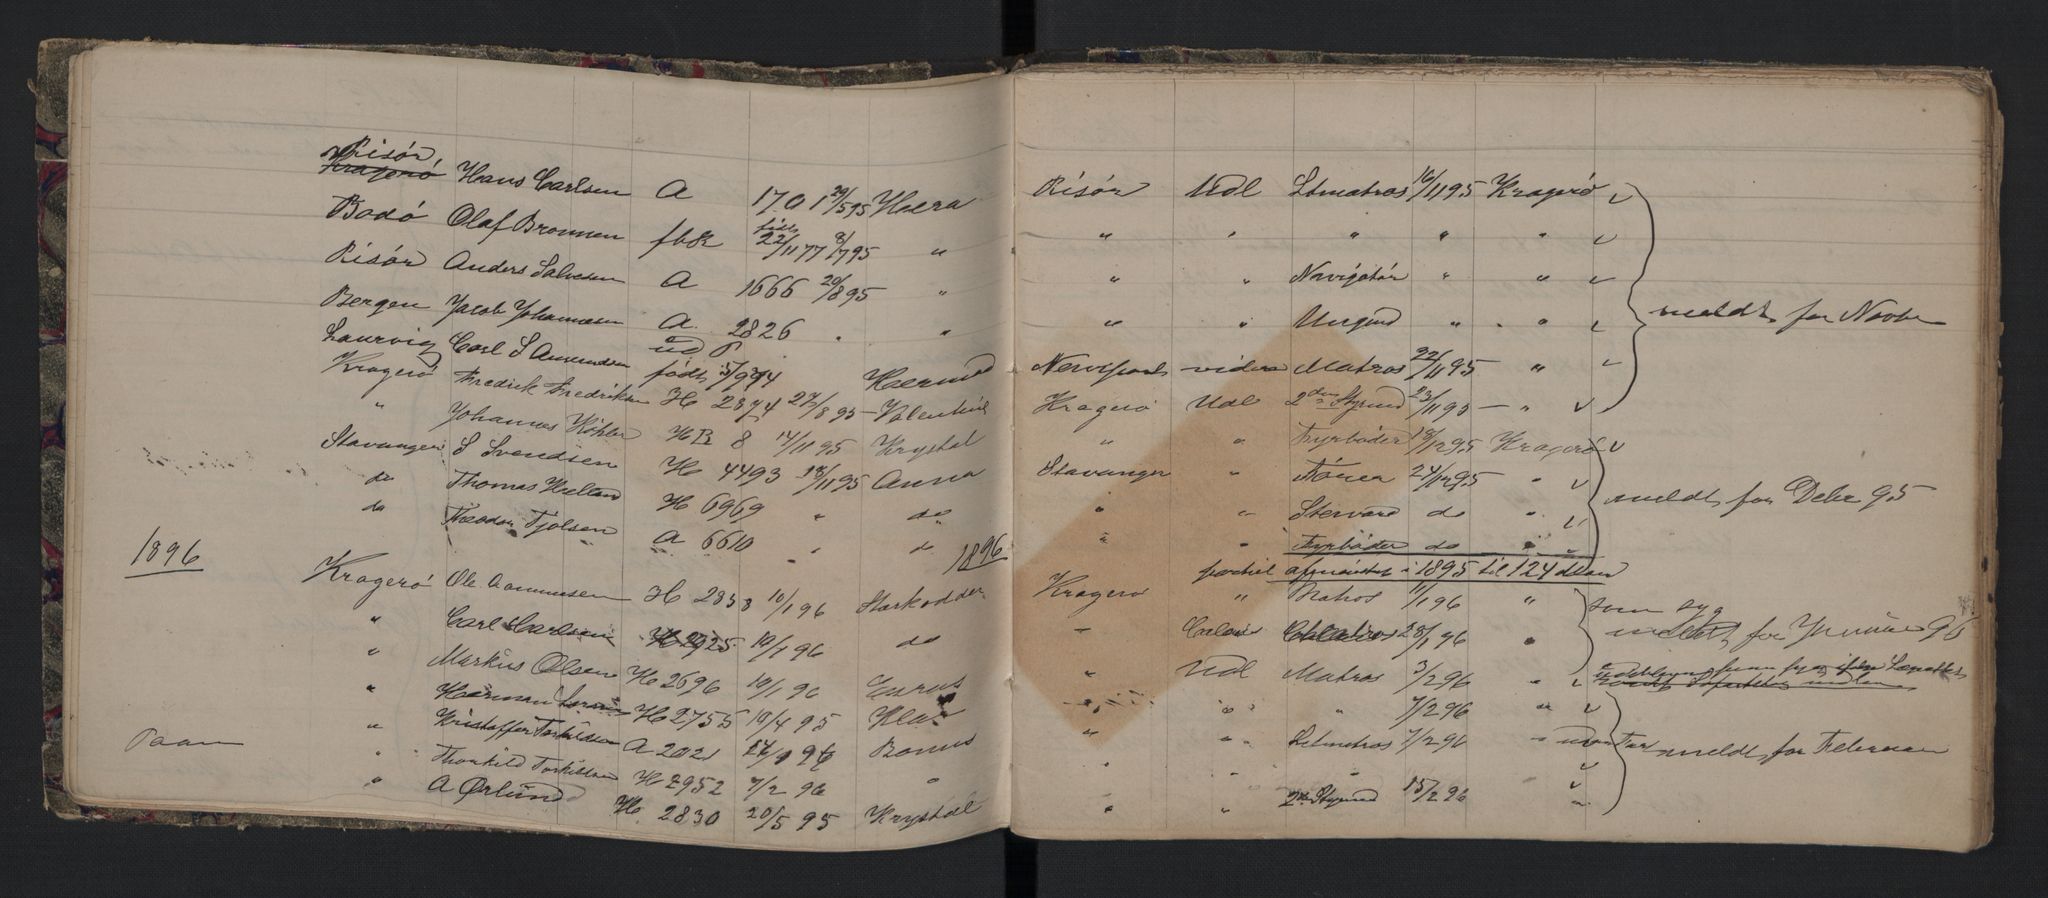 Risör,
Kragerö Hans Carlsen A 1701 29/5 95 Hera Risör Udl Ltmatros 16/11 95 Kragerö
Bodö Olaf Bronnen fbk født 22/11 77 8/7 95 " " " " " "
Risör Anders Salvesen A 1666 20/8 95 " " " Navigatör " "
Bergen Jacob Johannesen A. 2826 " " " " Ungmd " "
meldt for Novbr
Laurvig Carl S Amundsen ud født 5/9 74 Hermod Newport videre Matros 22/11 95 "
Kragerö Fredrik Fredriksen H 2874 27/8 95 – Valentine Kragerö Udl 2den Styrmd 23/11 95 – "
" Johannes Köhler H B 8 14/11 95 Krystal " " Fyrböder 18/12 95 Kragerö
Stavanger S Svendsen H 4493 18/11 95 Anna Stavanger " 24/12 95 "
meldt for Debr 95
do Thomas H 6969 " do " " Steward do "
do Theodor Tjolsen A 6610 " do " " Fyrböder do "
1896 1896
afmönstret i 1895 til 124 Man
Kragerö Ole Aanunsen H 2858 10/1 96 Starkodder Kragerö " Matros 11/1 96 "
som syg
" Carl Carlsen H 2925 10/1 96 do 28/1 96 "
meldt for Januar 96
" Markus Olsen H 2696 10/1 96 " Udl Matros 3/2 96 "
" Herman H 2755 19/4 95 " " " 7/2 96 "
Paam " Kristoffer Torkildsen A 2021 96 Bonus " " Letmatros 7/2 96 "
meldt for Februar
" Thorkild Torkildsen H 2952 7/2 96 " " " "
" A Ørlund H 2830 20/5 95 Krystal " " 2den Styrmd 15/2 96 "